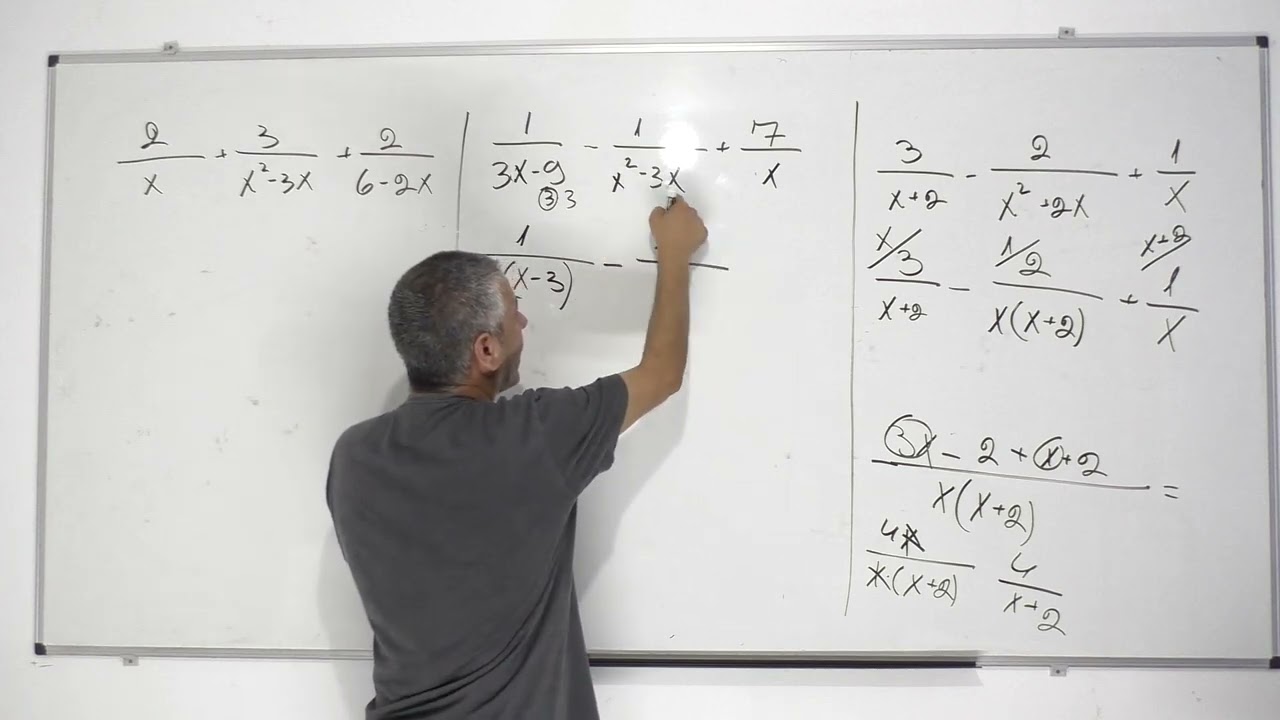 2/x + 3/(x²-3x) + 2/(6-2x)
1/(3x-9) - 1/(x²-3x) + 7/x
③3
1/((x-3)) -
3/(x+2) - 2/(x²+2x) + 1/x
x/ 1/ x+2/
3/(x+2) - 2/(x(x+2)) + 1/x
(3x - 2 + x+2)/(x(x+2)) =
4x/(x·(x+2)) 4/(x+2)